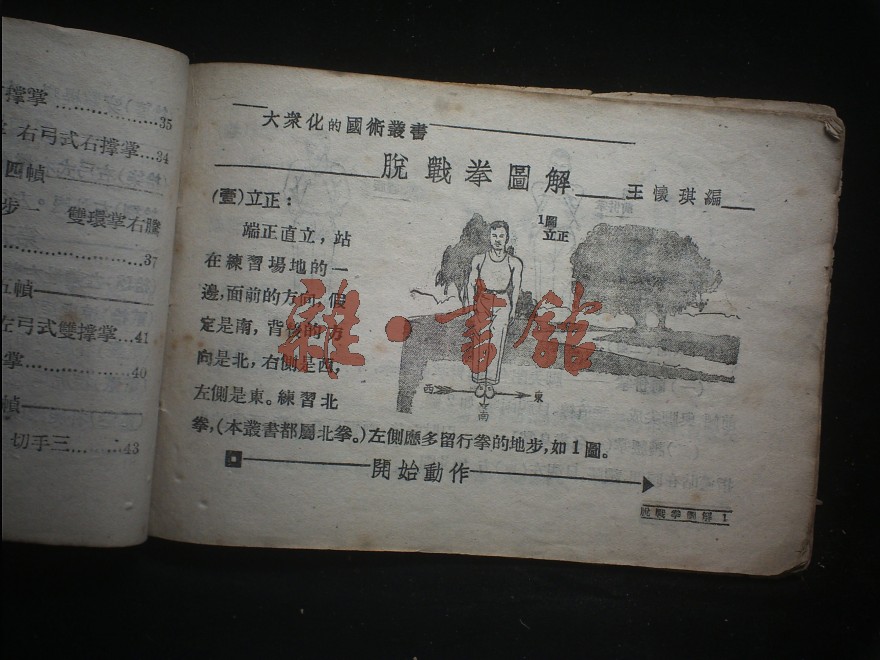 撐掌 ............35
右弓式右撐掌...34
四幀
步一 雙環掌右騰
............37
五幀
左弓式雙撐掌...41
掌............40
幀
切手三.........43
大衆化的國術叢書
脫戰拳圖解
王懷琪編
(壹)立正：
端正直立，站
在練習場地的一
邊，面前的方向，假
定是南，背後的方
向是北，右側是西，
左側是東。練習北
拳，(本叢書都屬北拳。)左側應多留行拳的地步，如1圖。
1圖
立正
西
東
南
開始動作
脫戰拳圖解 1
雜·書館